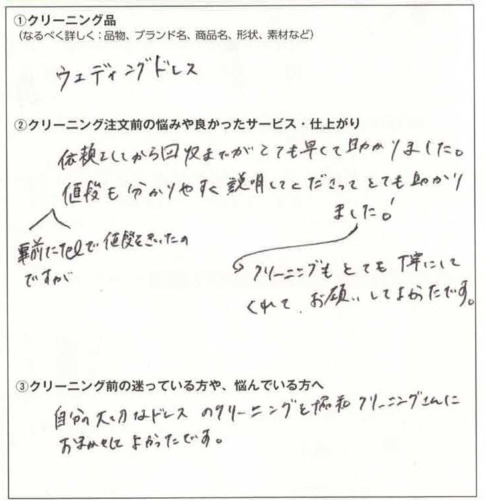 ①クリーニング品
(なるべく詳しく：品物、ブランド名、商品名、形状、素材など)
ウェディングドレス
②クリーニング注文前の悩みや良かったサービス・仕上がり
依頼してから回収までがとても早くて助かりました。
値段も分かりやすく説明してくださってとても助かり
ました！
事前にTelで値段をきいたの
ですが
クリーニングもとても丁寧にして
くれて、お願いしてよかったです。
③クリーニング前の迷っている方や、悩んでいる方へ
自分の大切なドレスのクリーニングを協和クリーニングさんに
おまかせしてよかったです。